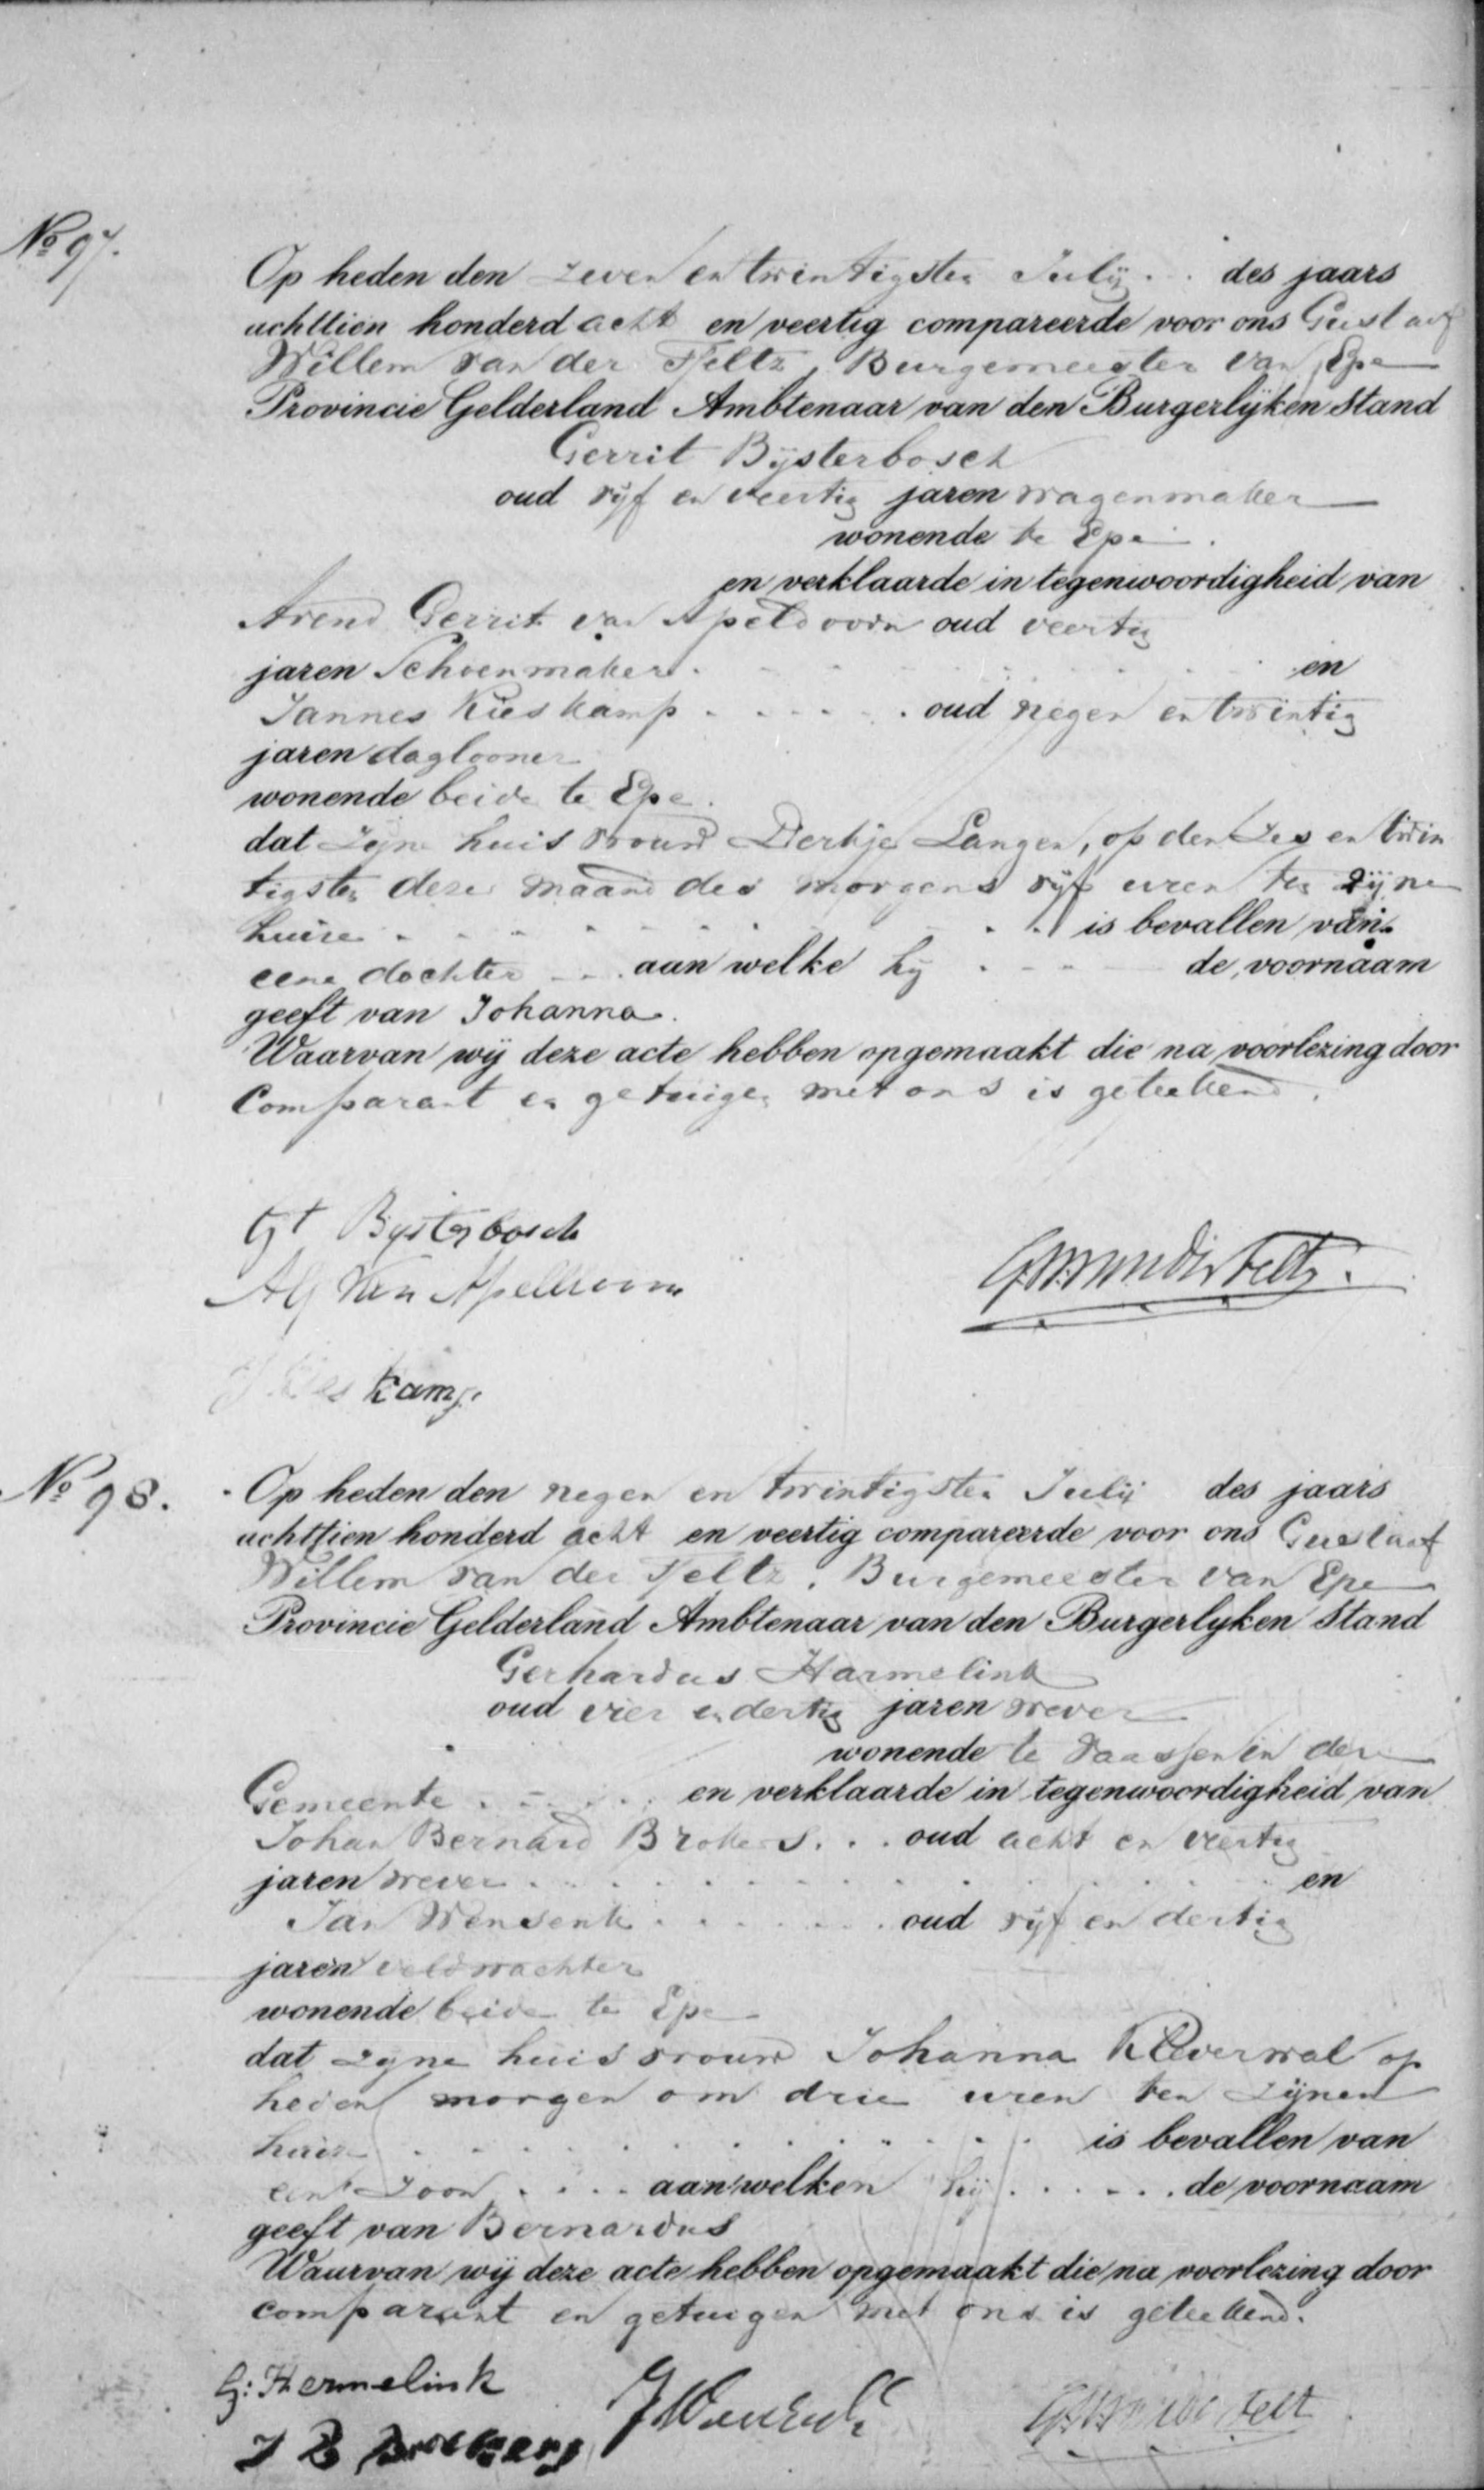 No 97.
Op heden den zeven en twintigsten Julij . . des jaars
achttien honderd acht en veertig compareerde voor ons Gustaaf
Willem van der Feltz, Burgemeester van Epe
Provincie Gelderland Ambtenaar van den Burgerlijken Stand
Gerrit Bijsterbosch
oud vijf en veertig jaren wagenmaker
wonende te Epe.
en verklaarde in tegenwoordigheid van
Arend Gerrit van Apeldoorn oud veertig
jaren Schoenmaker . . . en
Jannes Kieskamp . . . . . . oud negen en twintig
jaren daglooner
wonende beide te Epe.
dat zijn huisvrouw Derkje Langen, op den Zes en twin
tigsten dezer maand des morgens vijf uren ten zijne
huize . . . . . . is bevallen van
eene dochter . . . aan welke hij . . . de voornaam
geeft van Johanna.
Waarvan wij deze acte hebben opgemaakt die na voorlezing door
Comparant en getuigen met ons is geteekend.
Gt Bijsterbosch
AG Van Apeldoorn
GW van der Feltz.
J Kieskamp
No 98.
Op heden den negen en twintigsten Julij des jaars
achttien honderd acht en veertig compareerde voor ons Gustaaf
Willem van der Feltz, Burgemeester van Epe
Provincie Gelderland Ambtenaar van den Burgerlyken Stand
Gerhardus Harmelink
oud vier en dertig jaren wever
wonende te Vaassen in deze
Gemeente . . . . . en verklaarde in tegenwoordigheid van
Johan Bernard Brokers . . . oud acht en veertig
jaren wever . . . . . . en
Jan Wensenk . . . . . . oud vijf en dertig
jaren veldwachter
wonende beide te Epe
dat zijne huisvrouw Johanna Kleverwal op
heden morgen om drie uren ten zijnen
huize . . . . . . is bevallen van
een zoon . . . . aan welken hij . . . . . de voornaam
geeft van Bernardus
Waarvan wij deze acte hebben opgemaakt die na voorlezing door
comparant en getuigen met ons is geteekend.
G: Hermelink
JWensenk
GW van der Feltz
J B Brokers